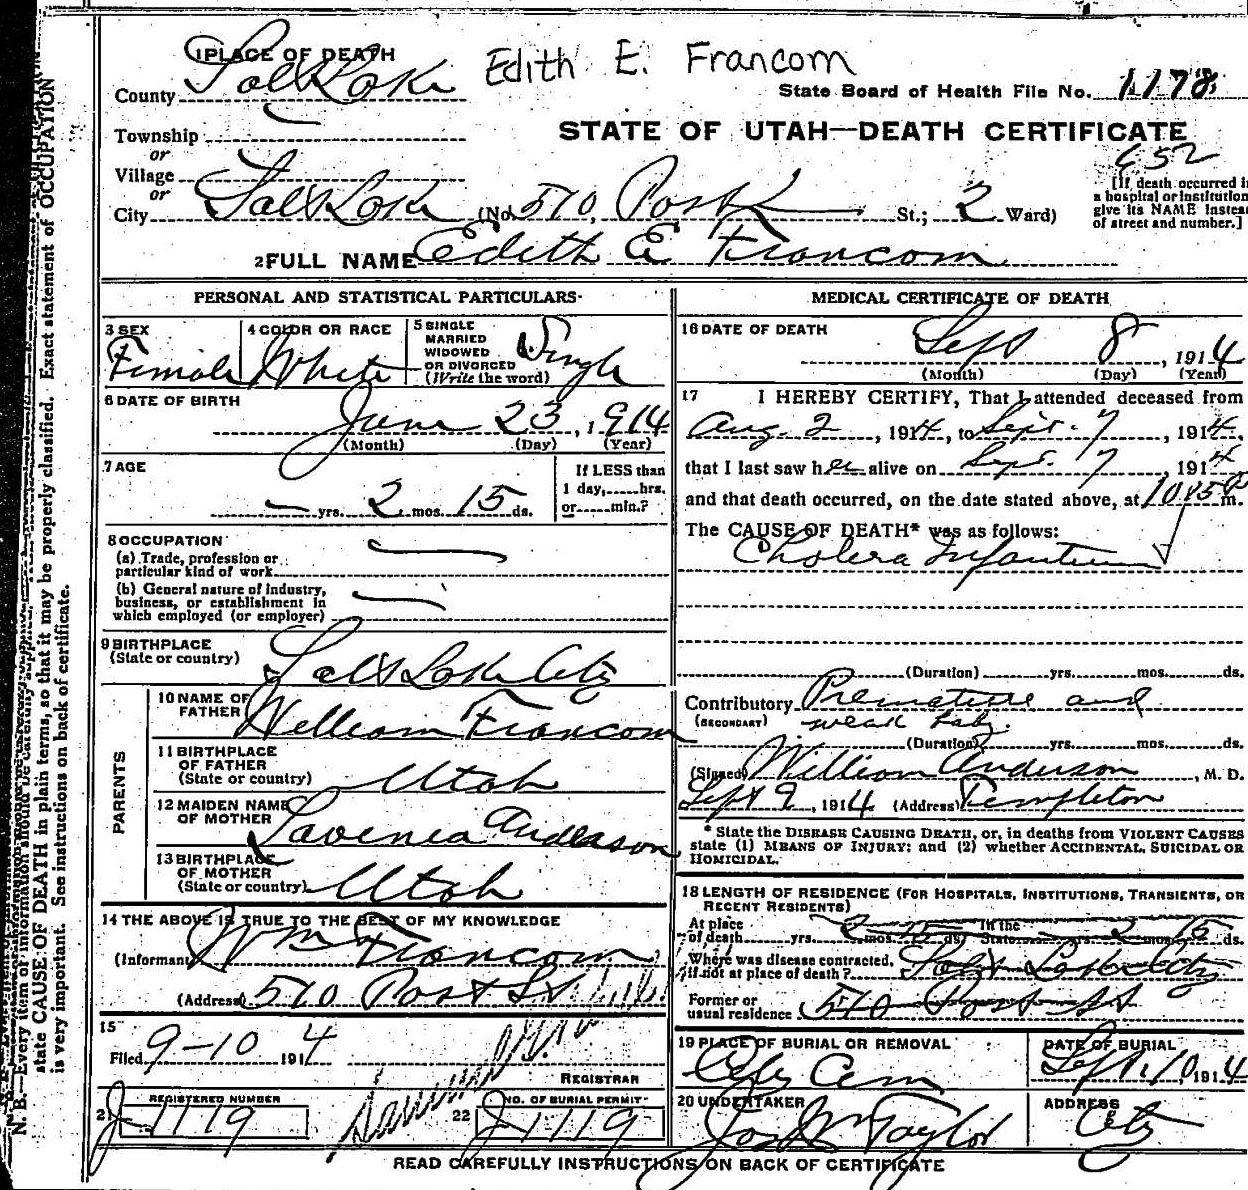 1 PLACE OF DEATH
Edith E. Francom
County Salt Lake
State Board of Health File No. 1178
Township
or
STATE OF UTAH—DEATH CERTIFICATE
652
Village
or
City Salt Lake (No. 570, Post St.; 2 Ward)
[If death occurred in
a hospital or institution
give its NAME instead
of street and number.]
2 FULL NAME Edith E Francom
PERSONAL AND STATISTICAL PARTICULARS
3 SEX
Female
4 COLOR OR RACE
White
5 SINGLE
MARRIED
WIDOWED
OR DIVORCED
(Write the word)
Single
6 DATE OF BIRTH
June 23, 1914
(Month) (Day) (Year)
7 AGE
— yrs. 2 mos. 15 ds.
If LESS than
1 day,......hrs.
or......min.?
8 OCCUPATION
(a) Trade, profession or
particular kind of work —
(b) General nature of industry,
business, or establishment in
which employed (or employer) —
9 BIRTHPLACE
(State or country) Salt Lake City
PARENTS
10 NAME OF
FATHER William Francom
11 BIRTHPLACE
OF FATHER
(State or country) Utah
12 MAIDEN NAME
OF MOTHER Lavenia Anderson
13 BIRTHPLACE
OF MOTHER
(State or country) Utah
14 THE ABOVE IS TRUE TO THE BEST OF MY KNOWLEDGE
(Informant) Wm Francom
(Address) 570 Post St
15
Filed 9-10 1914
REGISTRAR
REGISTERED NUMBER
21 J-1119
NO. OF BURIAL PERMIT
22 J-1119
MEDICAL CERTIFICATE OF DEATH
16 DATE OF DEATH
Sept 8, 1914
(Month) (Day) (Year)
17 I HEREBY CERTIFY, That I attended deceased from
Aug. 2, 1914, to Sept. 7, 1914,
that I last saw her alive on Sept. 7, 1914
and that death occurred, on the date stated above, at m.
The CAUSE OF DEATH* was as follows:
Cholera Infantum
(Duration) yrs. mos. ds.
Contributory Premature and
(SECONDARY) weak
(Duration) yrs. mos. ds.
(Signed) William Anderson, M. D.
Sept 9, 1914 (Address) Templeton
* State the DISEASE CAUSING DEATH, or, in deaths from VIOLENT CAUSES
state (1) MEANS OF INJURY; and (2) whether ACCIDENTAL, SUICIDAL OR
HOMICIDAL.
18 LENGTH OF RESIDENCE (FOR HOSPITALS, INSTITUTIONS, TRANSIENTS, OR
RECENT RESIDENTS)
At place
of death yrs. 2 mos. 15 ds. In the State yrs. 2 mos. 15 ds.
Where was disease contracted,
if not at place of death? Salt Lake City
Former or
usual residence 570 Post St
19 PLACE OF BURIAL OR REMOVAL
City Cem
DATE OF BURIAL
Sept. 10, 1914
20 UNDERTAKER
Jos Wm Taylor
ADDRESS
City
READ CAREFULLY INSTRUCTIONS ON BACK OF CERTIFICATE
N. B.—Every item of information should be carefully supplied.
state CAUSE OF DEATH in plain terms, so that it may be properly classified. Exact statement of OCCUPATION
is very important. See instructions on back of certificate.